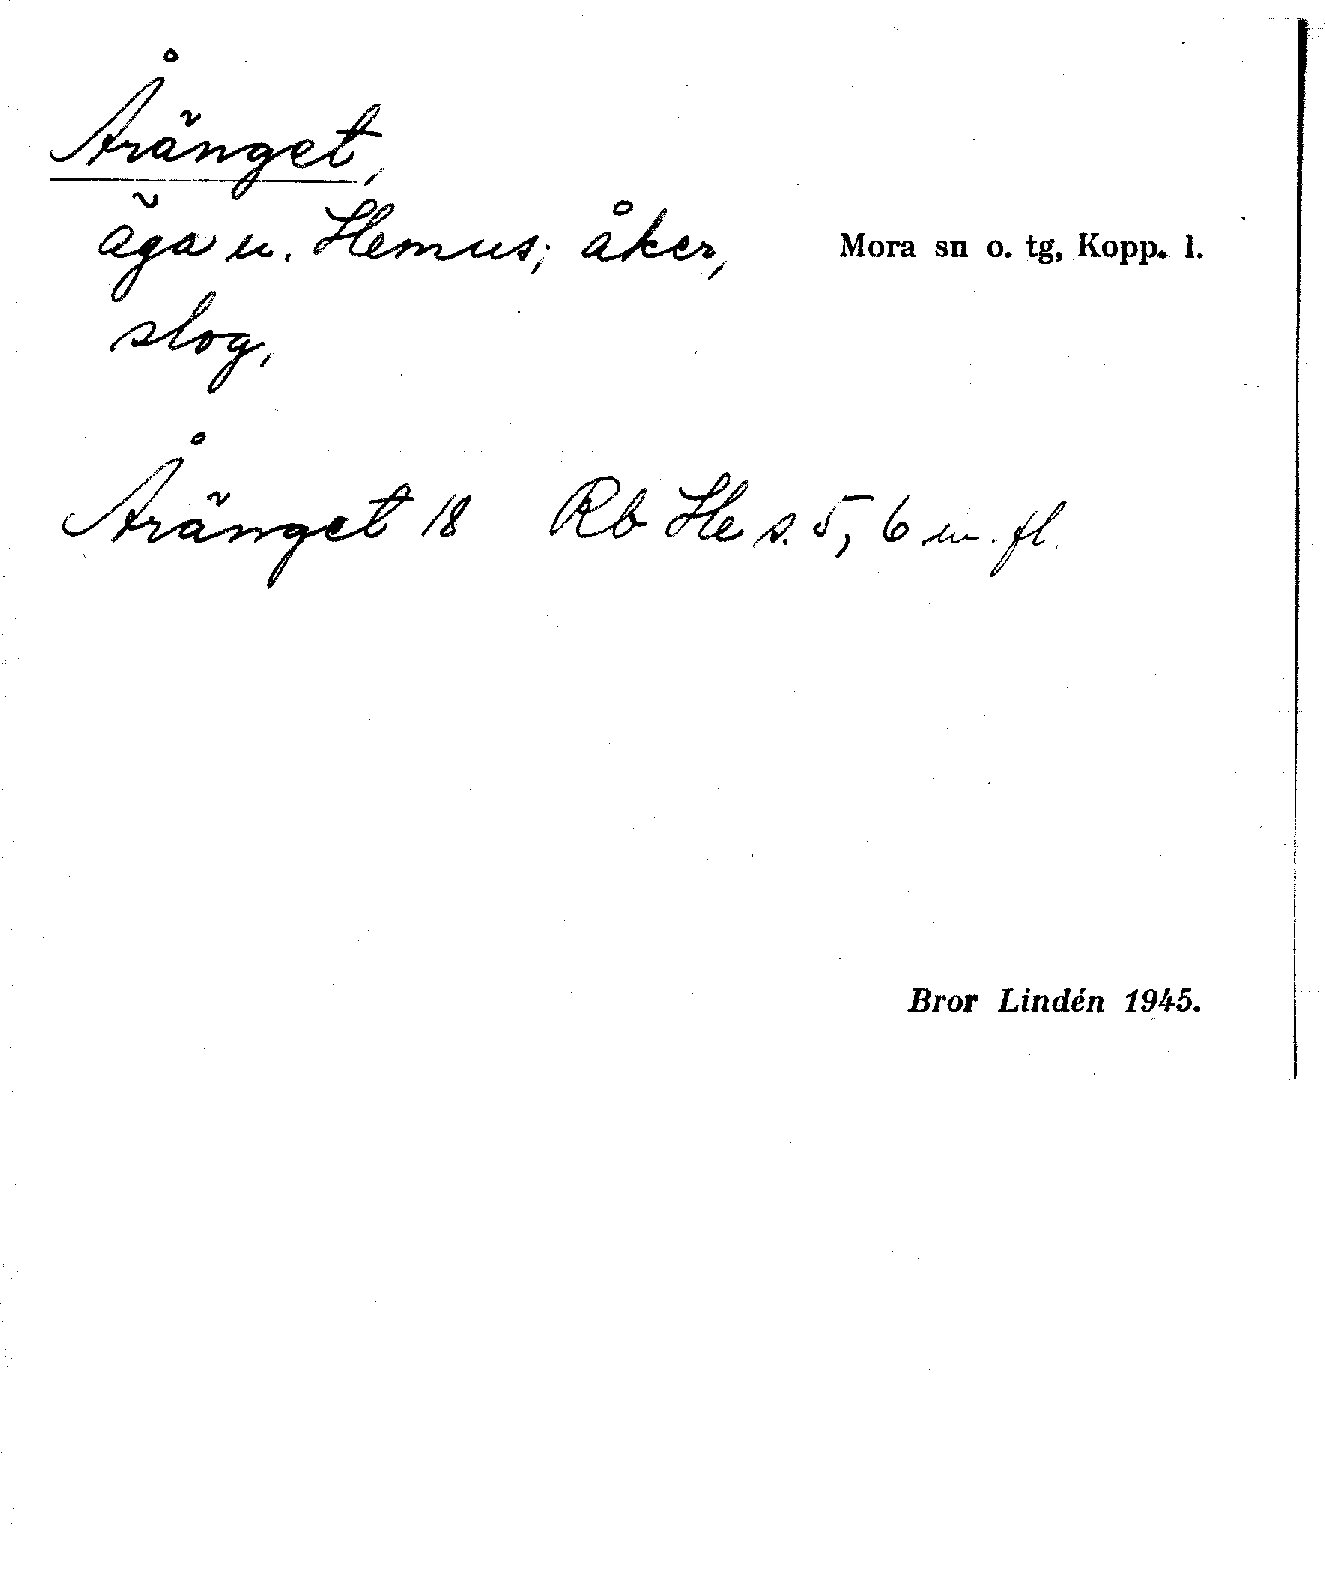 Åränget,
äga u. Hemus; åker,
Mora sn o. tg, Kopp. l.
slog,
Åränget 18 Rb He s. 5, 6 m. fl.
Bror Lindén 1945.